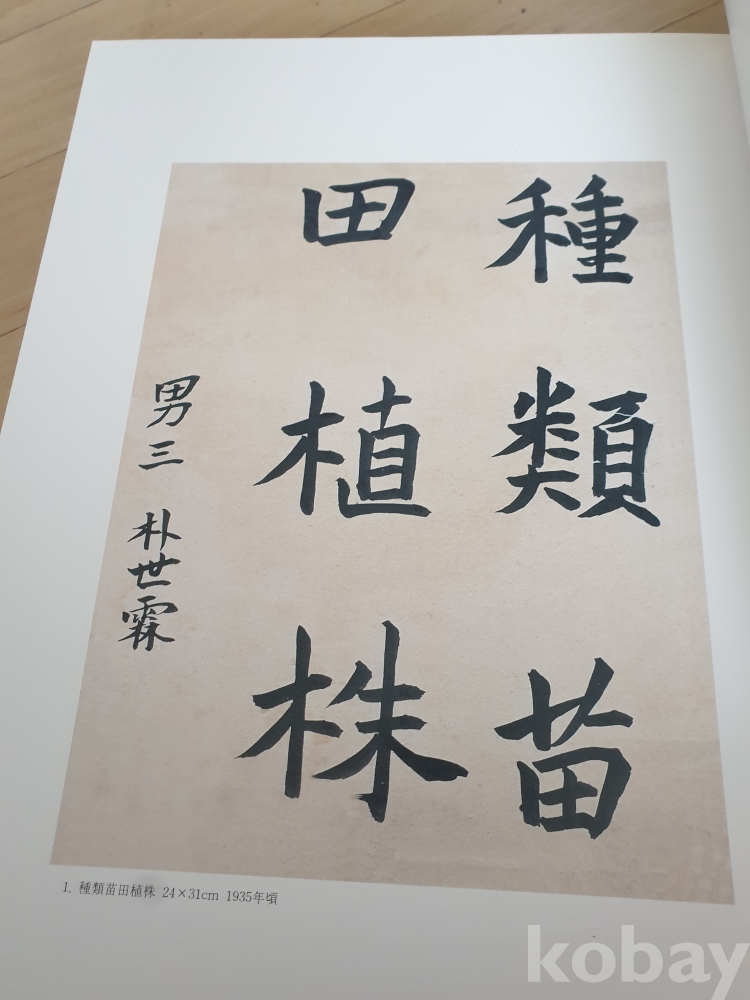 種類苗
田植株
男三 朴世霖
1. 種類苗田植株 24×31cm 1935年頃
kobay